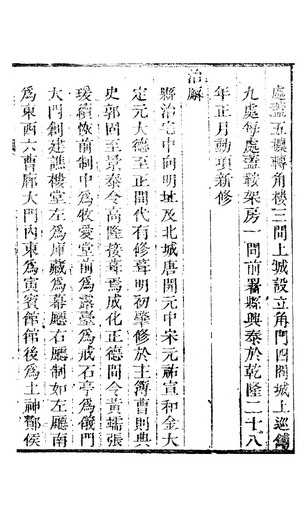 處蓋五檁轉角樓三間上城設立角門四閤城上巡鋪
九處每處蓋鞍架房一間前署縣興泰於乾隆二十八
年正月動項新修
治廨
縣治宅中向明址及北城唐開元中宋元祐宣和金大
定元大德至正間代有修葺明初肇修於主簿曹則典
史郭固至景泰令高隆接葺焉成化正德間令黃蠕張
瑗續恢前制中為牧愛堂前為露臺為戒石亭為儀門
大門創建譙樓堂左為庫藏為幕廳右廳制如左廳南
為東西六曹廊大門內東為寅賓館館後為土神鄼侯